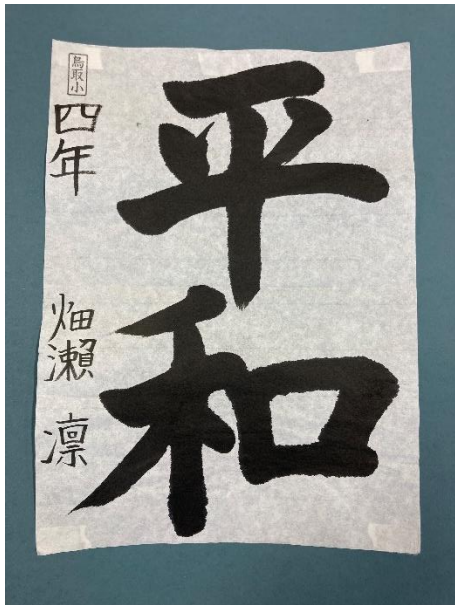 平和
鳥取小
四年
畑瀬 凛